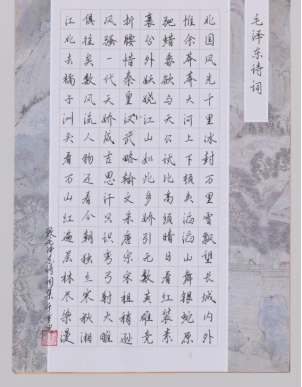 毛泽东诗词
北国风光千里冰封万里雪飘望长城内外
惟余莽莽大河上下顿失滔滔山舞银蛇原
驰蜡象欲与天公试比高须晴日看红装素
裹分外妖娆江山如此多娇引无数英雄竞
折腰惜秦皇汉武略输文采唐宗宋祖稍逊
风骚一代天骄成吉思汗只识弯弓射大雕
俱往矣数风流人物还看今朝独立寒秋湘
江北去橘子洲头看万山红遍层林尽染漫